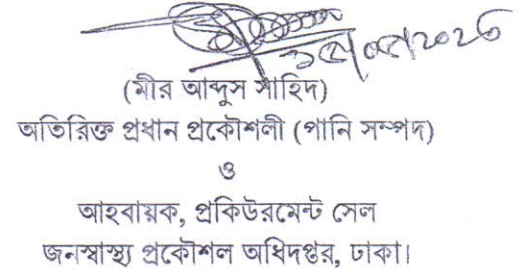 (মীর আব্দুস সাহিদ)
অতিরিক্ত প্রধান প্রকৌশলী (পানি সম্পদ)
ও
আহবায়ক, প্রকিউরমেন্ট সেল
জনস্বাস্থ্য প্রকৌশল অধিদপ্তর, ঢাকা।